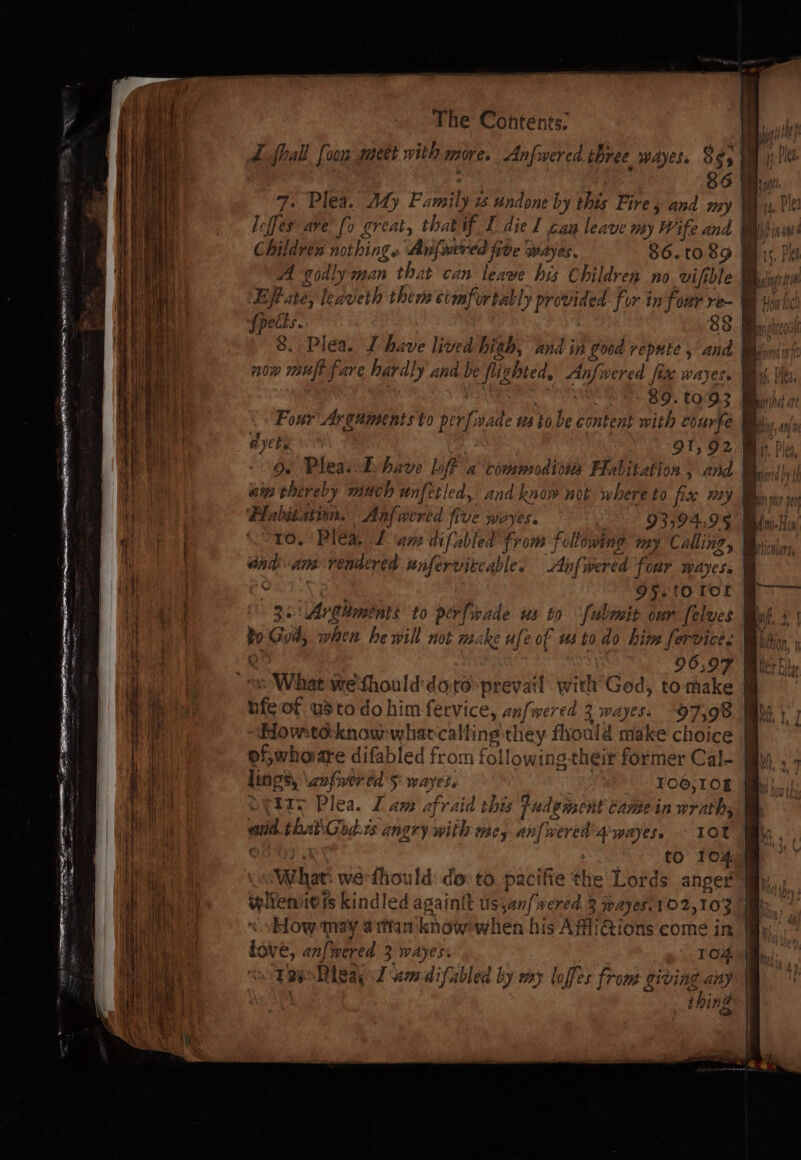 The Contents.
I shall soon meet with more. Answered three wayes. 85,
86
7. Plea. My Family is undone by this Fire, and my
losses are so great, that if I die I can leave my Wife and
Children nothing. Answered five wayes. 86. to 89
A godly man that can leave his Children no visible
Estate, leaveth them comfortably provided for in four re-
spects. 88
8. Plea. I have lived high, and in good repute, and
now must fare hardly and be slighted, Answered six wayes.
89. to 93
Four Arguments to perswade us to be content with course
dyet. 91, 92
9. Plea. I have lost a commodious Habitation, and
am thereby much unsetled, and know not where to fix my
Habitation. Answered five wayes. 93,94,95
10. Plea. I am disabled from following my Calling,
and am rendered unserviceable. Answered four wayes.
95. to 101
3. Arguments to perswade us to submit our selves
to God, when he will not make use of us to do him service.
96,97
What we should do to prevail with God, to make
use of us to do him service, answered 3 wayes. 97,98
How to know what calling they should make choice
of, who are disabled from following their former Cal-
lings, answered 5 wayes. 100,101
11. Plea. I am afraid this Judgment came in wrath,
and that God is angry with me, answered 4 wayes. 101
to 104
What we should do to pacifie the Lords anger
when it is kindled against us, answered 3 wayes. 102,103
How may a man know when his Afflictions come in
love, answered 3 wayes. 104
12. Plea, I am disabled by my losses from giving any
thing